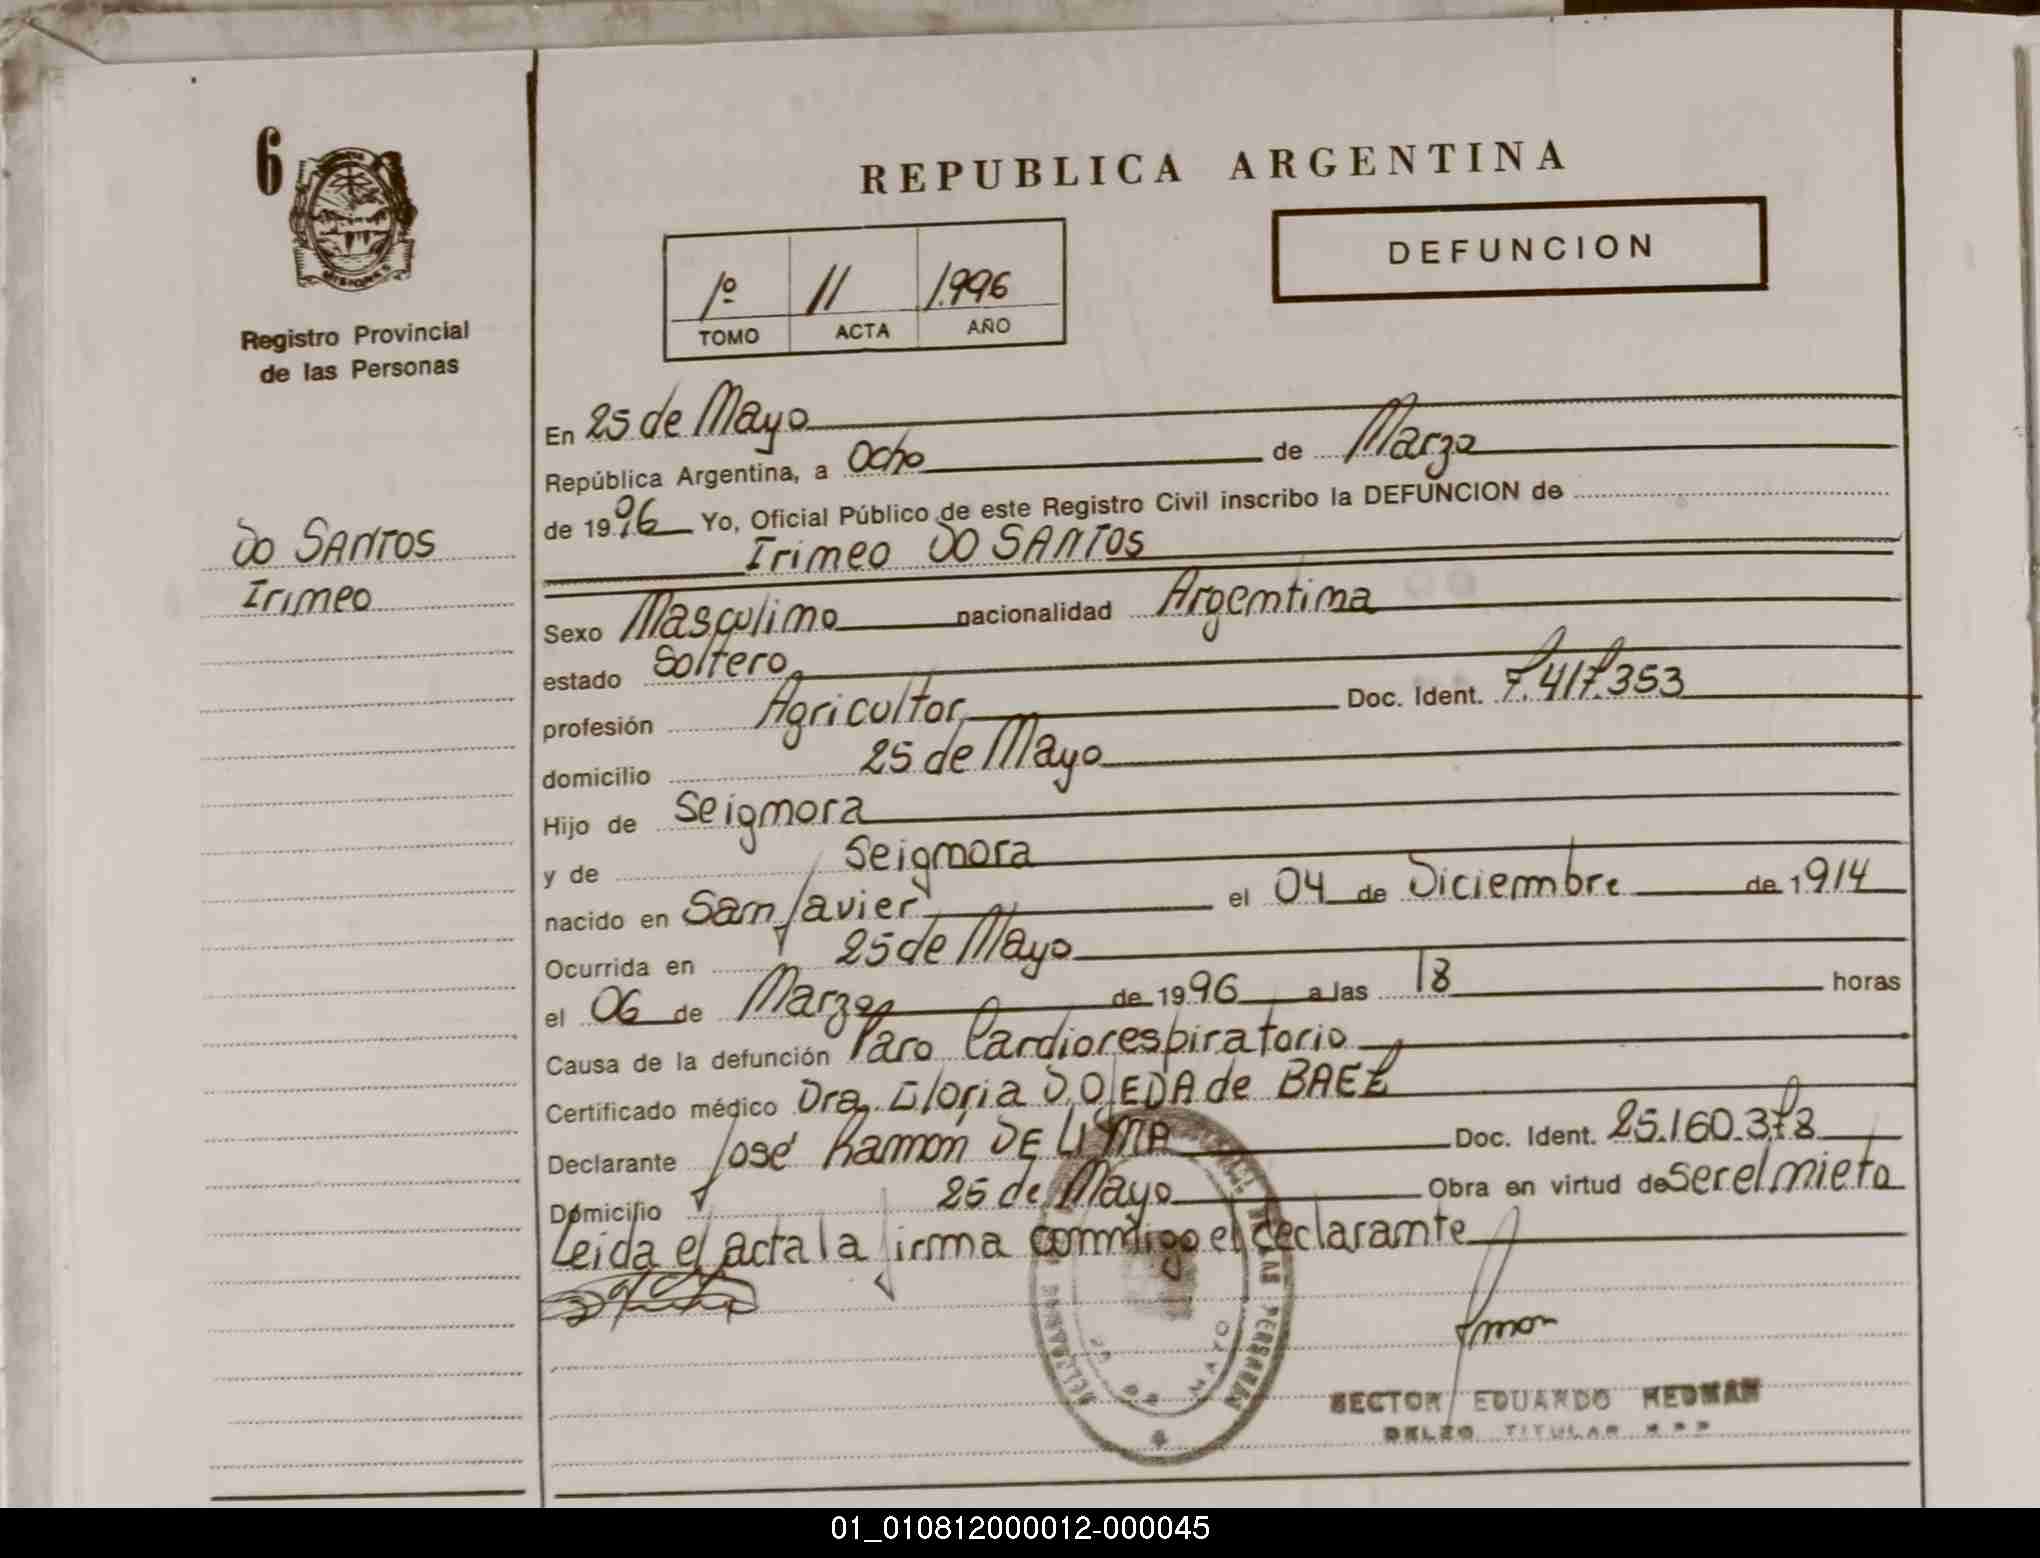 6
REPUBLICA ARGENTINA
DEFUNCION
1º 11 1.996
TOMO ACTA AÑO
Registro Provincial
de las Personas
DO SANTOS
Irineo
En 25 de Mayo
República Argentina, a Ocho de Marzo
de 1996 Yo, Oficial Público de este Registro Civil inscribo la DEFUNCION de
Irineo DO SANTOS
Sexo Masculino nacionalidad Argentina
estado Soltero
profesión Agricultor Doc. Ident. 7.417.353
domicilio 25 de Mayo
Hijo de Seignora
y de Seignora
nacido en San Javier el 04 de Diciembre de 1914
Ocurrida en 25 de Mayo
el 06 de Marzo de 1996 a las 18 horas
Causa de la defunción Paro Cardiorespiratorio
Certificado médico Dra. Gloria D. OJEDA de BAEZ
Declarante José Ramon DE LIMA Doc. Ident. 25.160.378
Domicilio 25 de Mayo Obra en virtud de ser el nieto
Leida el acta la firma conmigo el declarante
25 DE MAYO
EDUARDO
TITULAR
01_010812000012-000045